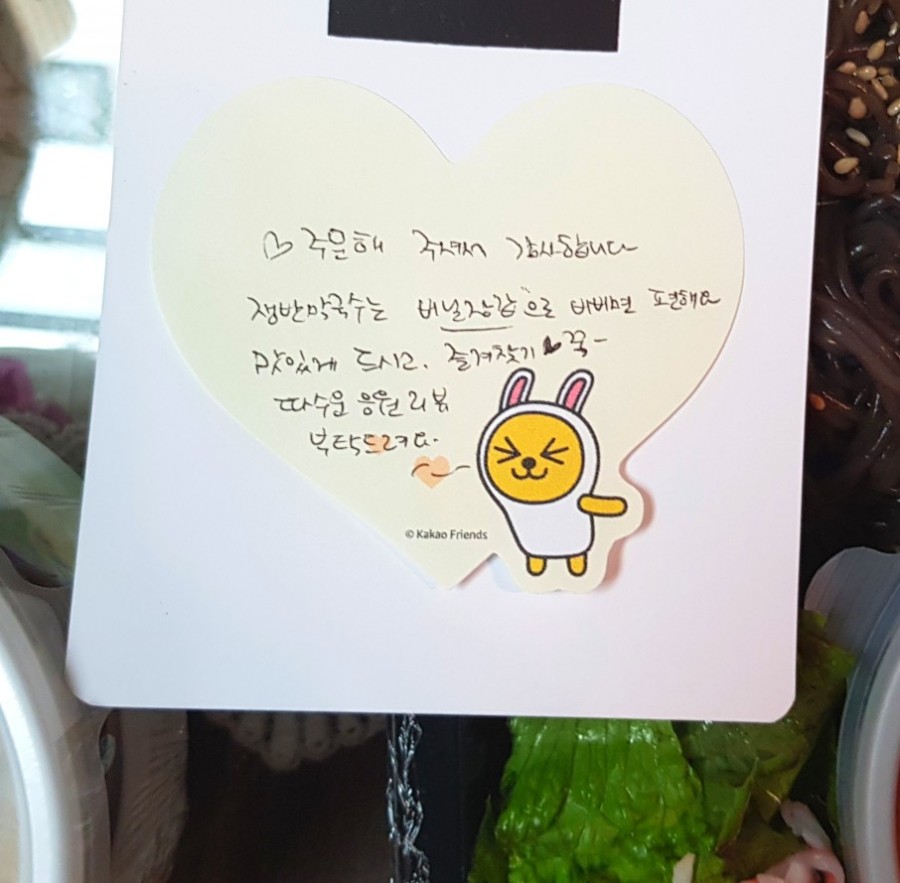 ♡ 주문해 주셔서 감사합니다
쟁반막국수는 비닐장갑"으로 비비면 편해요
맛있게 드시고, 즐겨찾기 ♥ 꾹~
따수운 응원 리뷰
부탁드려요.
© Kakao Friends